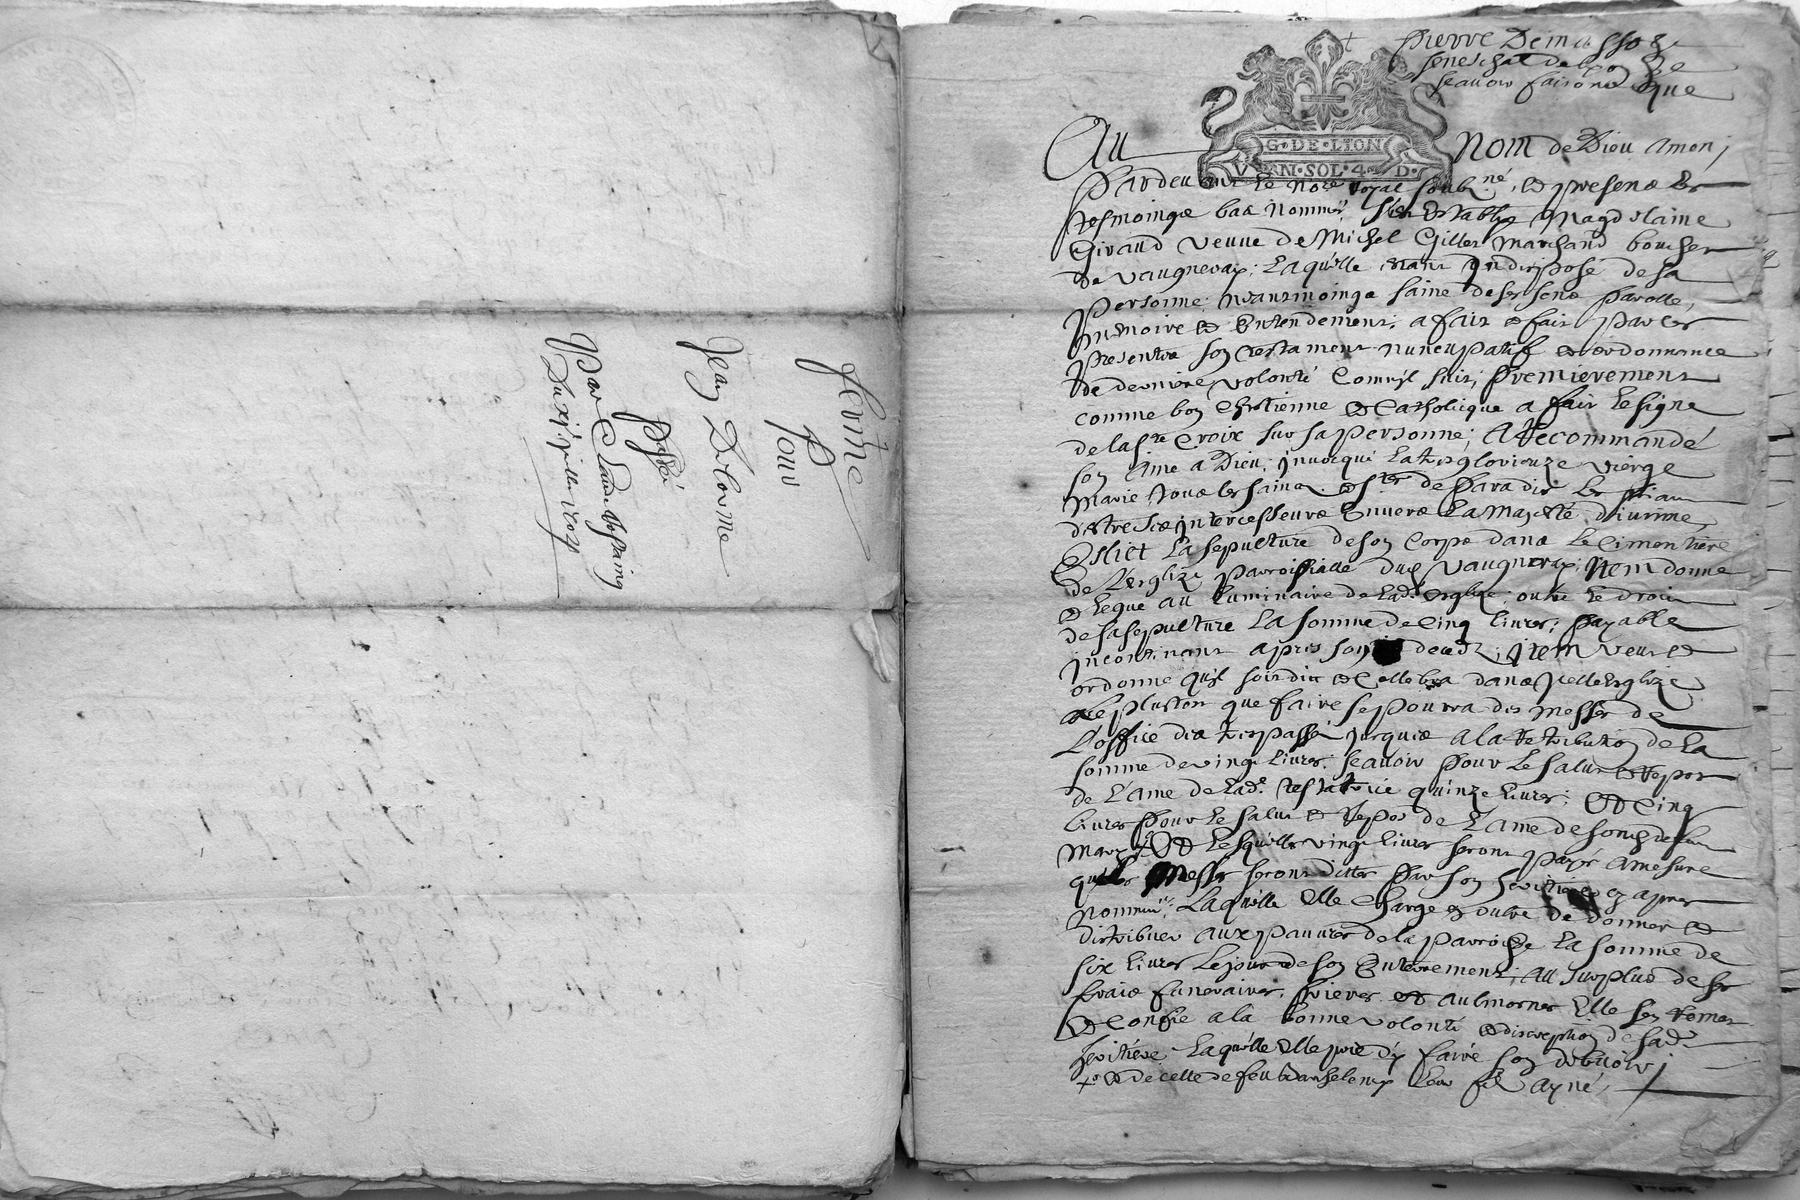 ferme
pour
Jean Delorme
passé
Par Claude
Pierre Demasso &c
seneschal de Lyon &c
scavoir faisons que
G·DE·LION
V SOL·4 D·
Au Nom de Dieu amen;
Pardevant le no.re royal soubz.né, et presence des
tesmoings bas nommés, s'est establye Magdelaine
Giraud veuve de Michel Gilles marchand boucher
de Vaugneray; Laquelle estant indisposé de sa
personne, neantmoings saine de ses sens parolle,
memoire et entendement; a fait et fait par ces
presentes son testament nuncupatif et ordonnance
de derniere volonté comm'il suit; Premierement
comme bon chrestienne et Catholicque a fait le signe
de la s.te Croix sur sa personne; A Recommandé
son ame a Dieu; jnvocqué la tres glorieuze vierge
Marie tous les saints et s.tes de Paradis les priant
d'estre ses jntercesseurs Envers La Majesté divinne,
Eslict La sepulture de son Corps dans le Cimentiere
de L'esglize parroissialle dud. Vaugneray; Item donne
et legue au luminaire de lad.e esglize, outre le droit
de sa sepulture La somme de Cinq livres; payable
jncontinant apres son decedz; jtem veut et
ordonne qu'il soit dit et Cellebré dans jcelle esglize
le plustost que faire se pourra des messes de
L'office des trespassés jusques a la Retribution de La
somme de vingt livres; scavoir pour le salut et repos
de L'ame de lad.e testatrice quinze livres; Et Cinq
livres pour le salut et Repos de L'ame de sond. defunt
mary; Lesquelles vingt livres seront payés a mesure
que les Messes seront dittes par son heritiere cy apres
nommée; Laquelle Elle charge en outre de donner et
distribuer aux pauvres de la parroisse La somme de
six livres le jour de son Enterrement; Au surplus de ses
fraix funeraires, prieres et aulmosnes Elle s'en remet
et Confie a la bonne volonté et discreption de sad.e
heritiere Laquelle Elle prie d'y faire son debvoir;
et de celle de feu leur fils ayné;